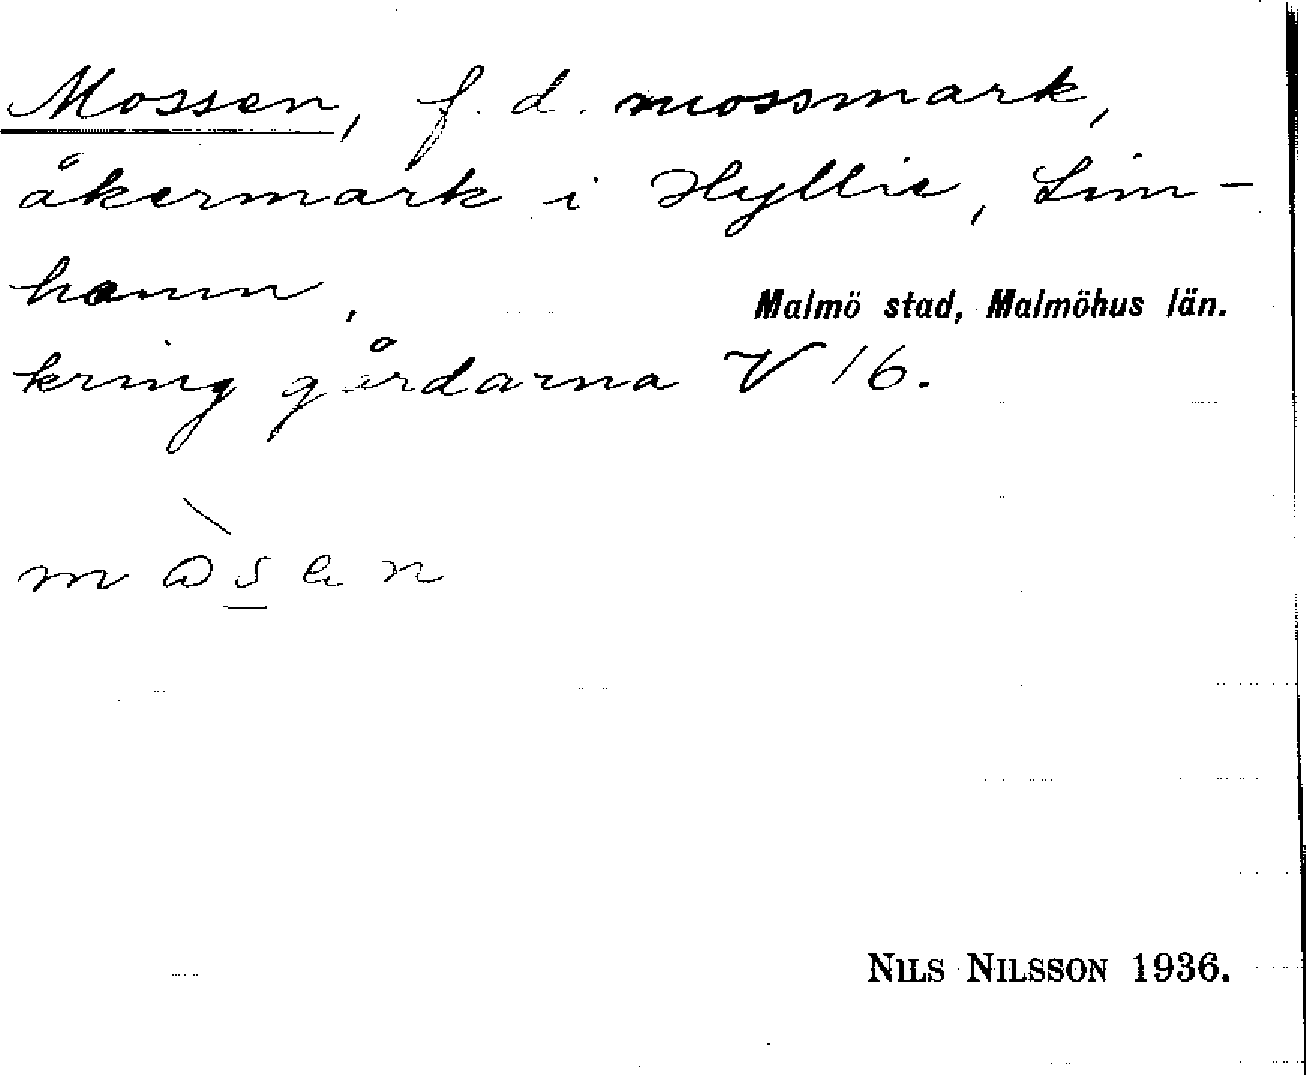 Mossen, f. d. mossmark,
åkermark i Hyllie, Lim-
hamn,
Malmö stad, Malmöhus län.
kring gårdarna V 16.
NILS NILSSON 1936.